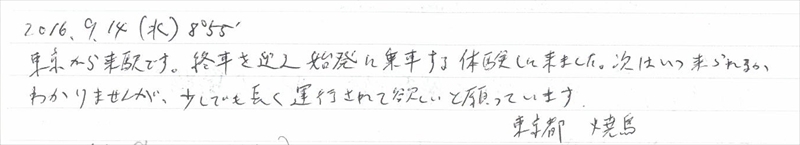 2016.9.14(水) 8°55′
東京から来駅です。終車を迎え始発に乗車する体験しに来ました。次はいつ来られるか、
わかりませんが、少しでも長く運行されて欲しいと願っています.
東京都 焼鳥